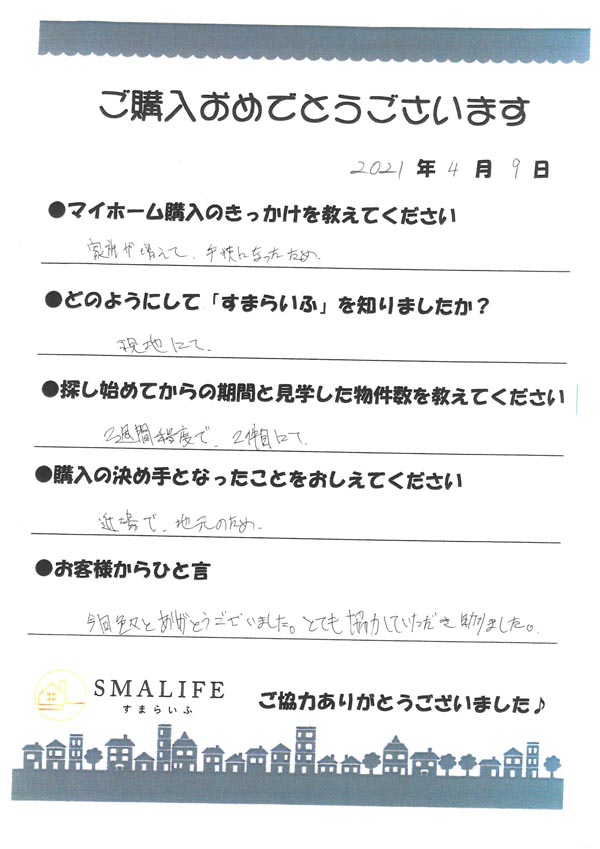 ご購入おめでとうございます
2021年4月9日
●マイホーム購入のきっかけを教えてください
家族が増えて、手狭になったため.
●どのようにして「すまらいふ」を知りましたか？
現地にて.
●探し始めてからの期間と見学した物件数を教えてください
2週間程度で、2件目にて.
●購入の決め手となったことをおしえてください
近場で、地元のため.
●お客様からひと言
今回色々とありがとうございました。とても協力していただき助かりました。
SMALIFE
すまらいふ
ご協力ありがとうございました♪